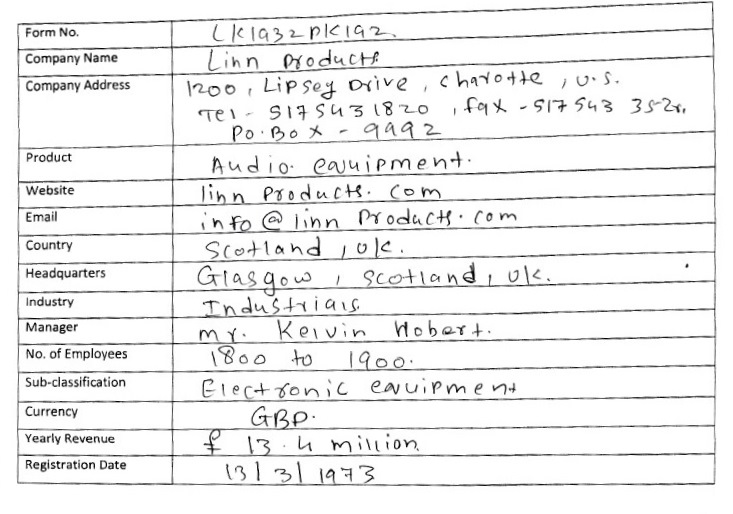 Form No. LK1932PK192.
Company Name Linn Products
Company Address 1200, Lipsey Drive, Charotte, U.S.
Tel - 517 543 1820, fax - 517 543 3521,
P.O. Box - 9992
Product Audio. equipment.
Website linn Products. com
Email info @ linn Products. com
Country Scotland, UK.
Headquarters Glasgow, Scotland, UK.
Industry Industrials
Manager Mr. Kelvin Hobert.
No. of Employees 1800 to 1900.
Sub-classification Electronic equipment
Currency GBP.
Yearly Revenue £ 13.4 million
Registration Date 13/3/1973